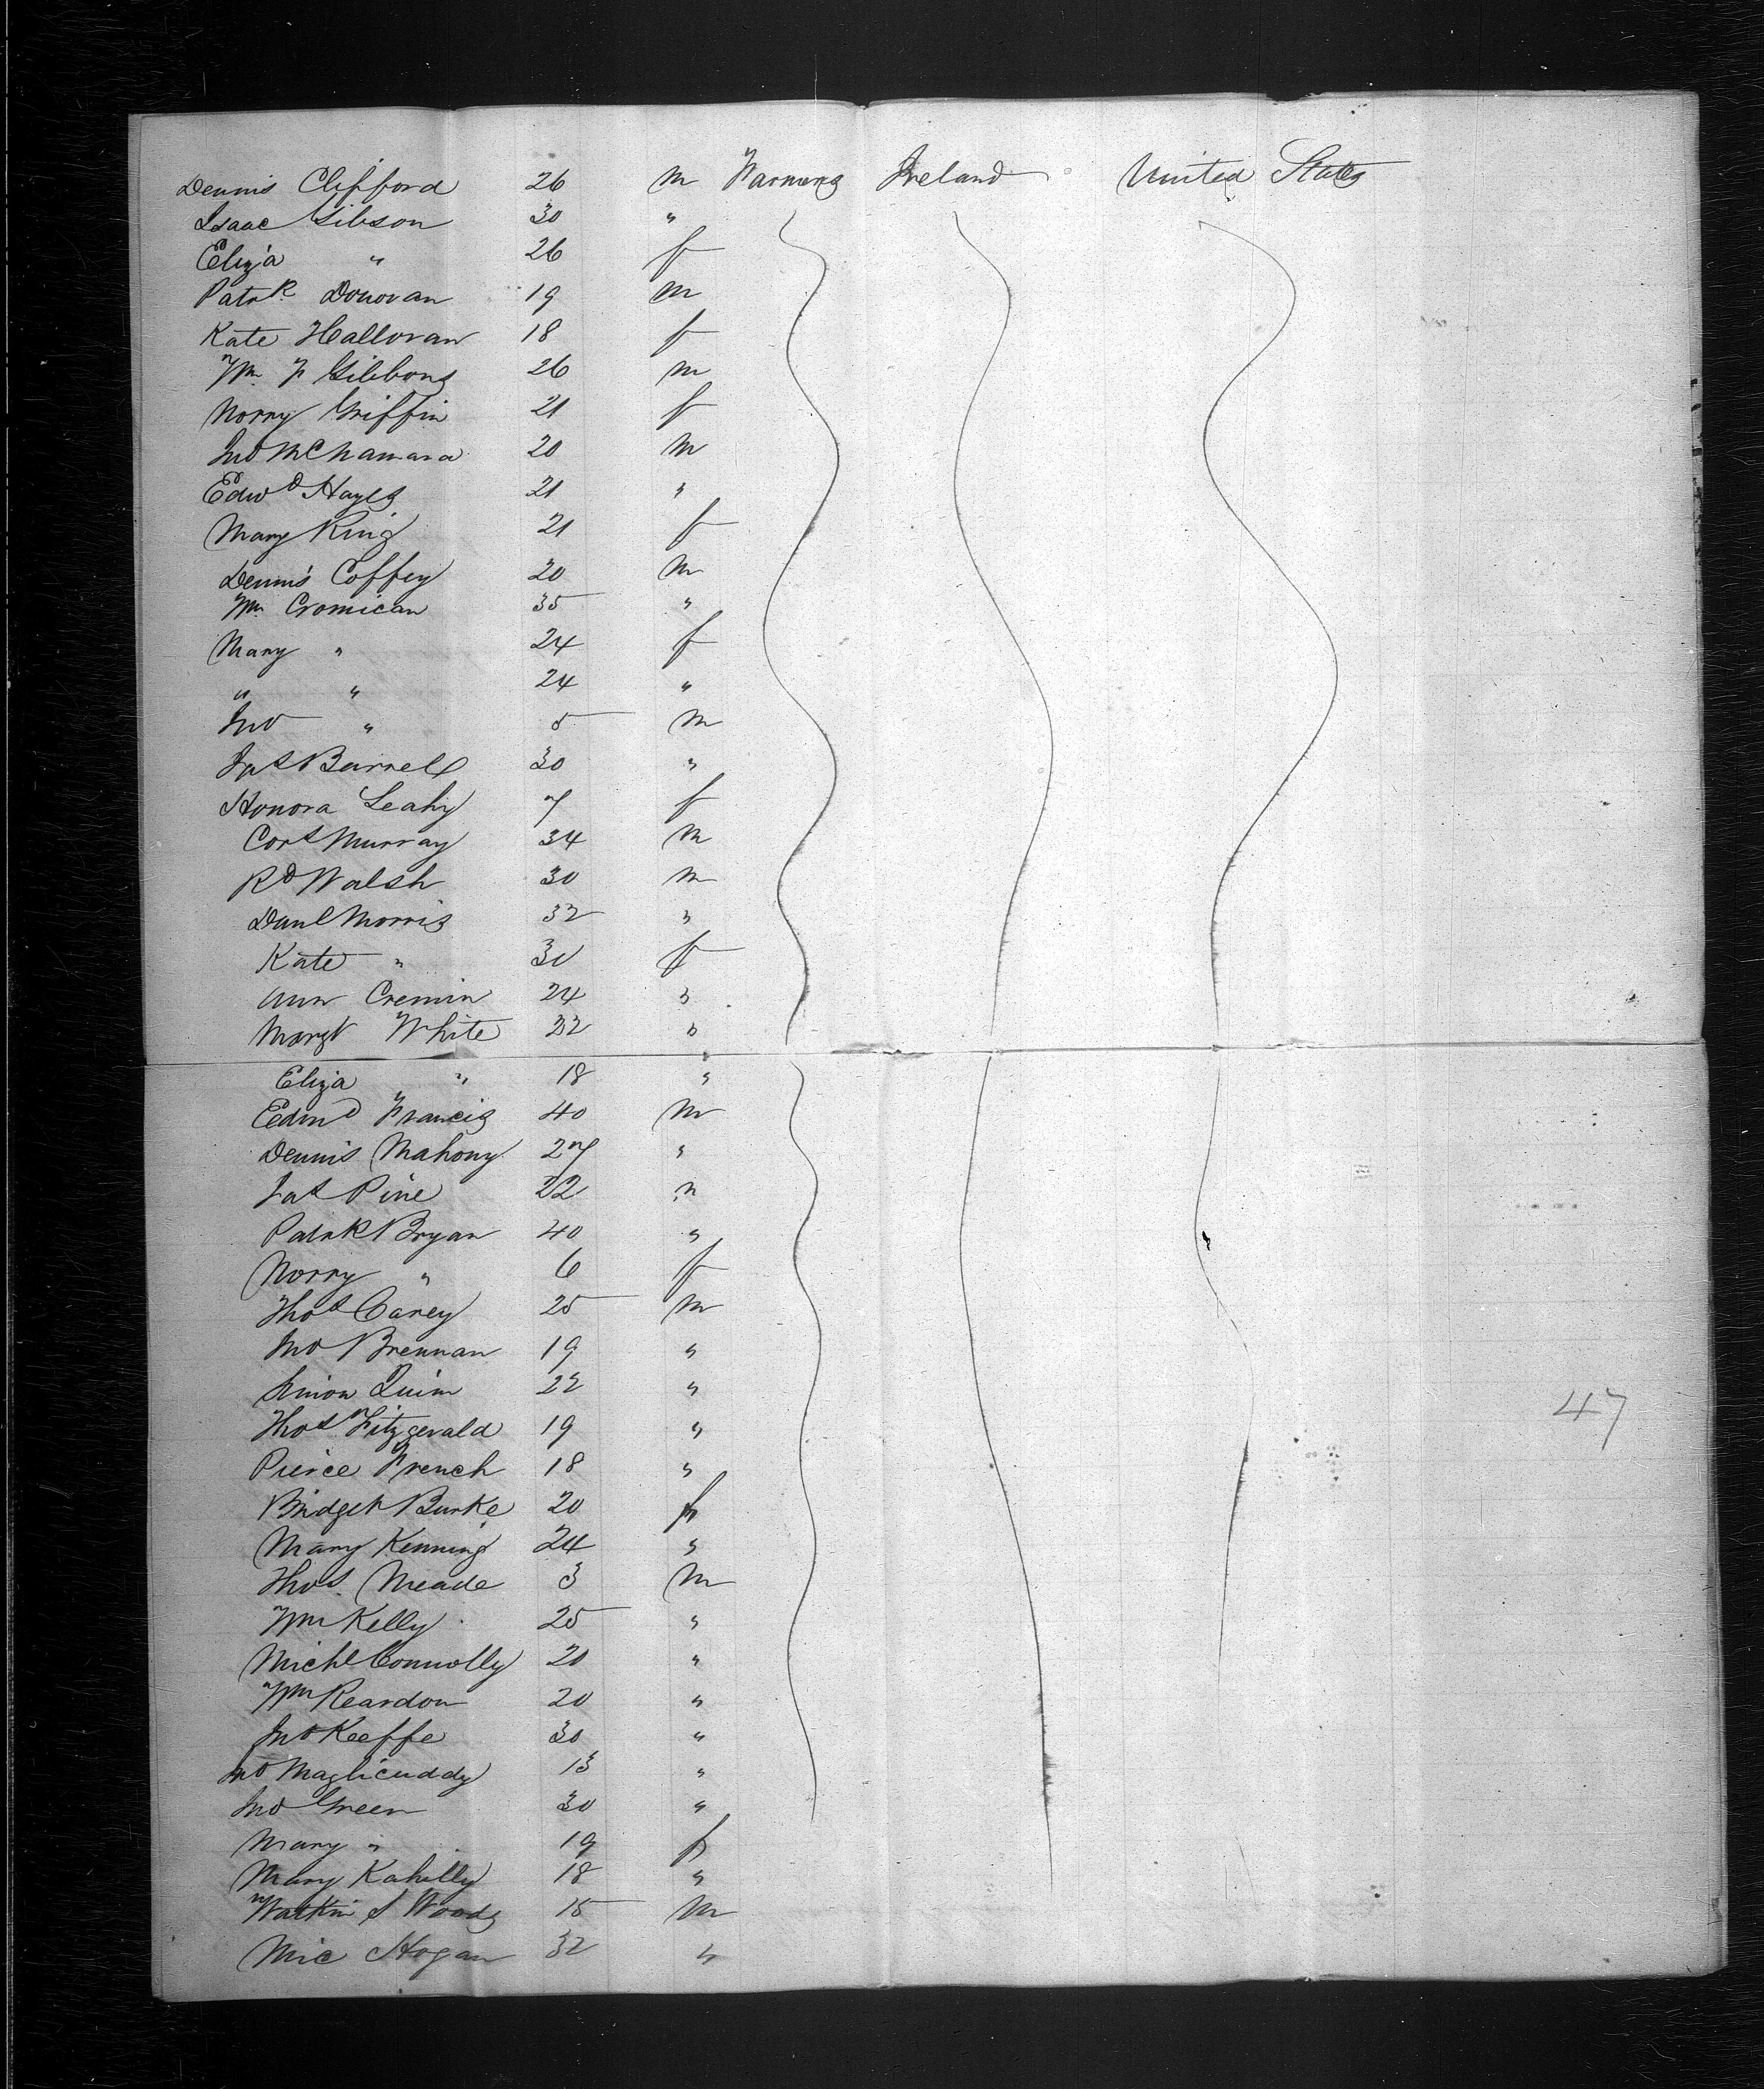 Dennis Clifford 26 m Farmers Ireland United States
Isaac Gibson 30 "
Eliza " 26 f
Patrk Donovan 19 m
Kate Halloran 18 f
Wm F Gibbons 26 m
Norry Griffin 21 f
Jno McNamara 20 m
Edwd Hayes 21 "
Mary King 21 f
Dennis Coffey 20 m
Wm Cromican 35 "
Mary " 24 f
" " 24 "
Jno " 5 m
Jas Burrell 30 "
Honora Leahy 7 f
Cors Murray 34 m
Rd Walsh 30 m
Danl Morris 32 "
Kate " 30 f
Ann Cremin 24 "
Margt White 22 "
Eliza " 18 "
Edmd Francis 40 m
Dennis Mahony 27 "
Jas Pine 22 "
Patrk Bryan 40 "
Norry " 6 f
Thos Carey 25 m
Jno Brennan 19 "
Simon Quim 22 "
Thos Fitzgerald 19 "
Pierce French 18 "
Bridget Burke 20 f
Mary Kenning 24 "
Thos Meade 3 m
Wm Kelly 25 "
Michl Connolly 20 "
Wm Reardon 20 "
Jno Keeffe 30 "
Jno Maglicuddy 13 "
Jno Green 30 "
Mary " 19 f
Mary Kahilly 18 "
Watkin S Woods 15 m
Mic Hogan 32 "
47